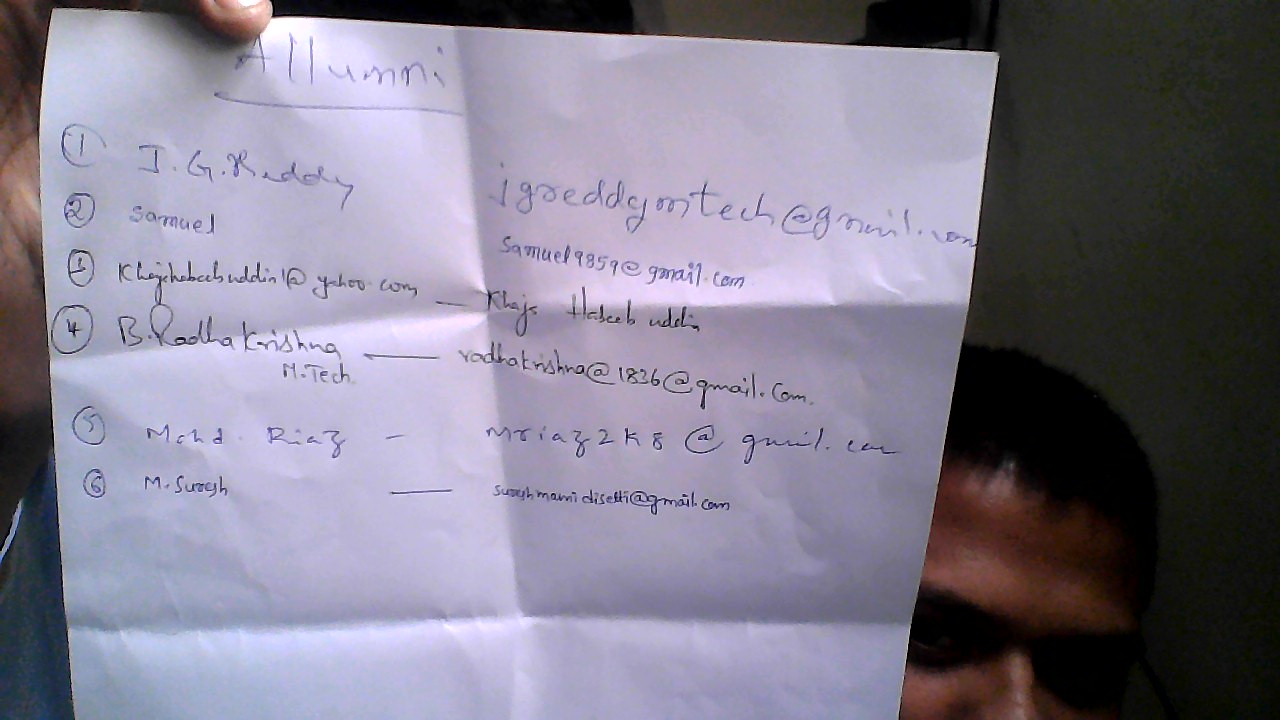 Allumni
① J. G. Reddy jgreddymtech@gmail.com
② Samuel Samuel9859@gmail.com
③ Khajahabeebuddin1@yahoo.com — Khaja Habeeb uddin
④ B. Radha Krishna — radhakrishna@1836@gmail.com.
M.Tech.
⑤ Mohd. Riaz - mriaz2k8@gmail.com
⑥ M. Suresh — sureshmamidisetti@gmail.com